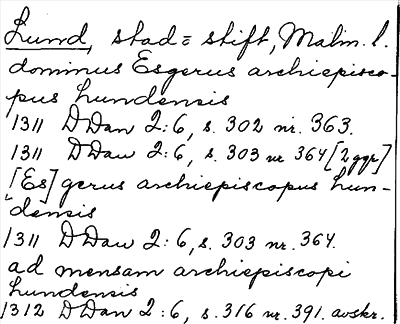 Lund, stad = stift, Malm. l.
dominus Esgerus archiepisco-
pus Lundensis
1311 DDan 2:6, s. 302 nr. 363.
1311 DDan 2:6, s. 303 nr 364 [2 ggr]
[Es]gerus archiepiscopus Lun-
densis
1311 DDan 2:6, s. 303 nr. 364.
ad mensam archiepiscopi
Lundensis
1312 DDan 2:6, s. 316 nr. 391. avskr.